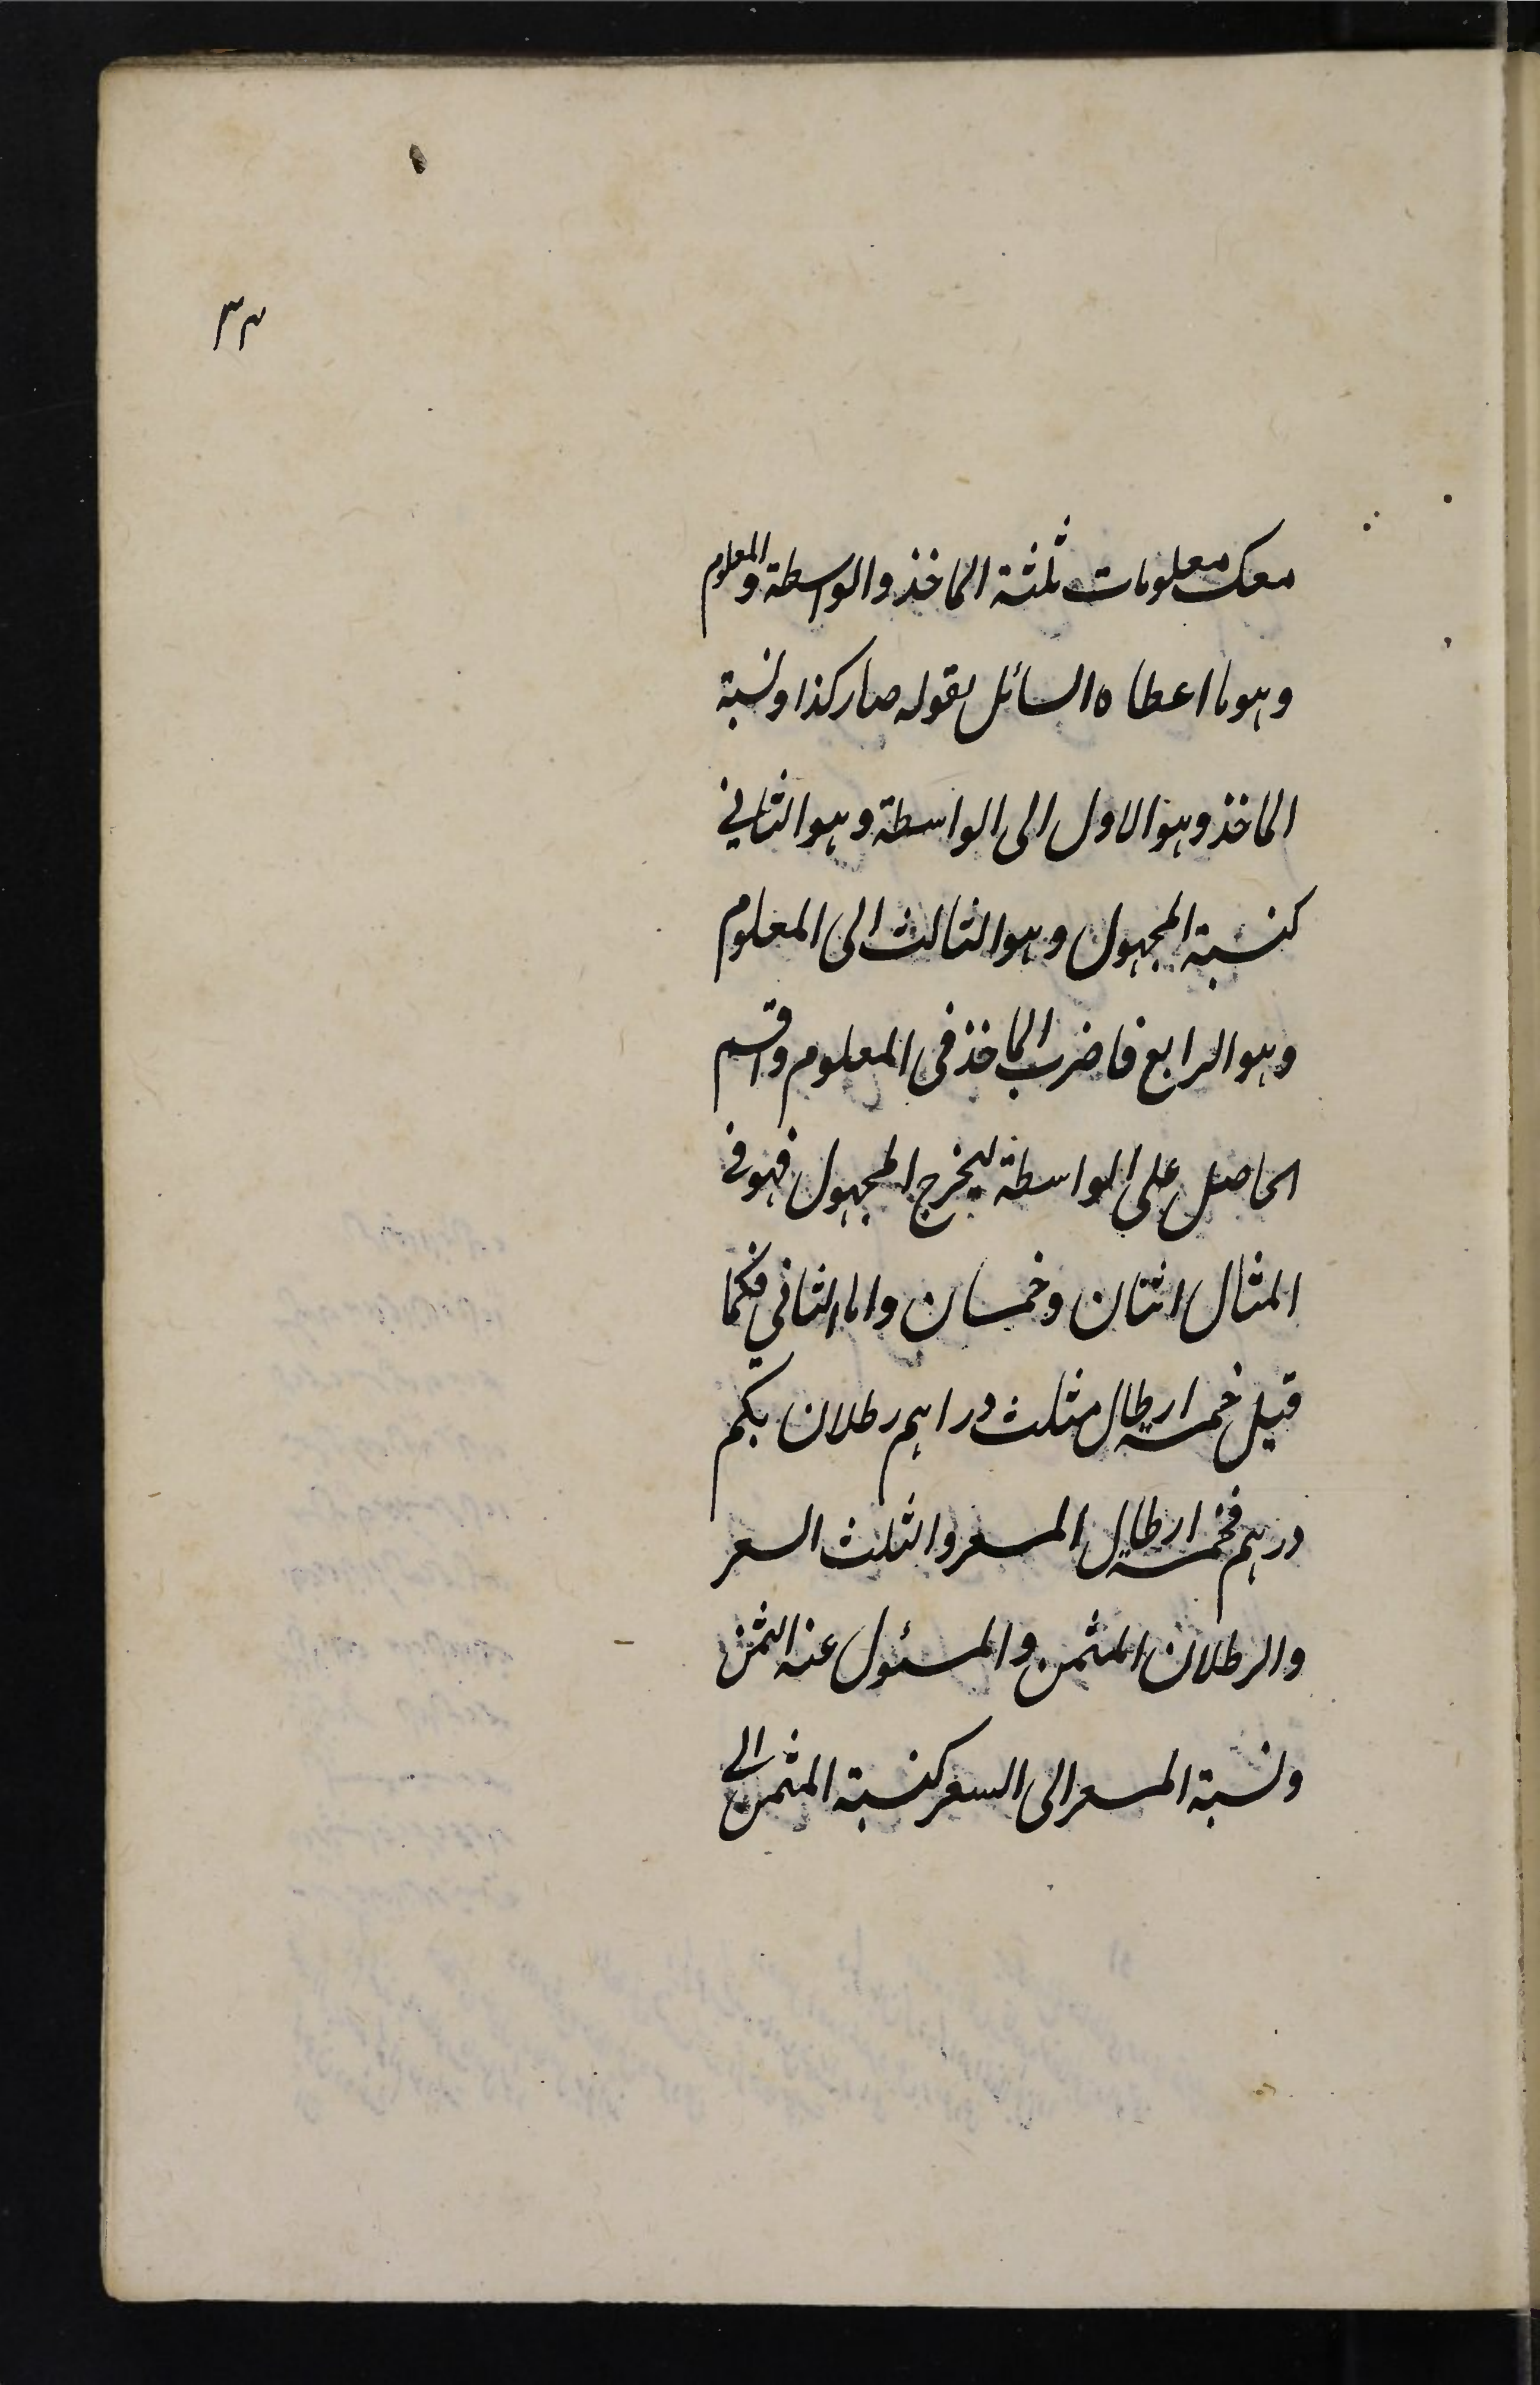 ٣٣
معك معلومات ثلثة الماخذ والواسطة والمعلوم
وهو ما اعطاه السائل بقوله صار كذا ونسبة
الماخذ وهو الاول الى الواسطة وهو الثاني
كنسبة المجهول وهو الثالث الى المعلوم
وهو الرابع فاضرب الماخذ فى المعلوم واقسم
الحاصل على الواسطة ليخرج المجهول فهو فى
المثال اثنان وخمسان واما الثاني فكما
قيل خمسة ارطال بثلث دراهم رطلان بكم
درهم فخمسة ارطال المسعر والثلث السعر
والرطلان المثمن والمسئول عنه الثمن
ونسبة المسعر الى السعر كنسبة المثمن الى